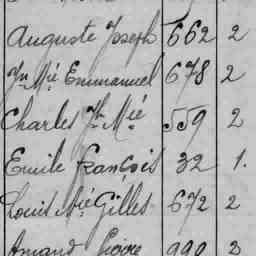 Auguste Joseph 662 2
Jn Mié Emmanuel 678 2
Charles Jn Mié 559 2
Emile François 32 1.
Louis Mié Gilles 672 2
Amand 990 2